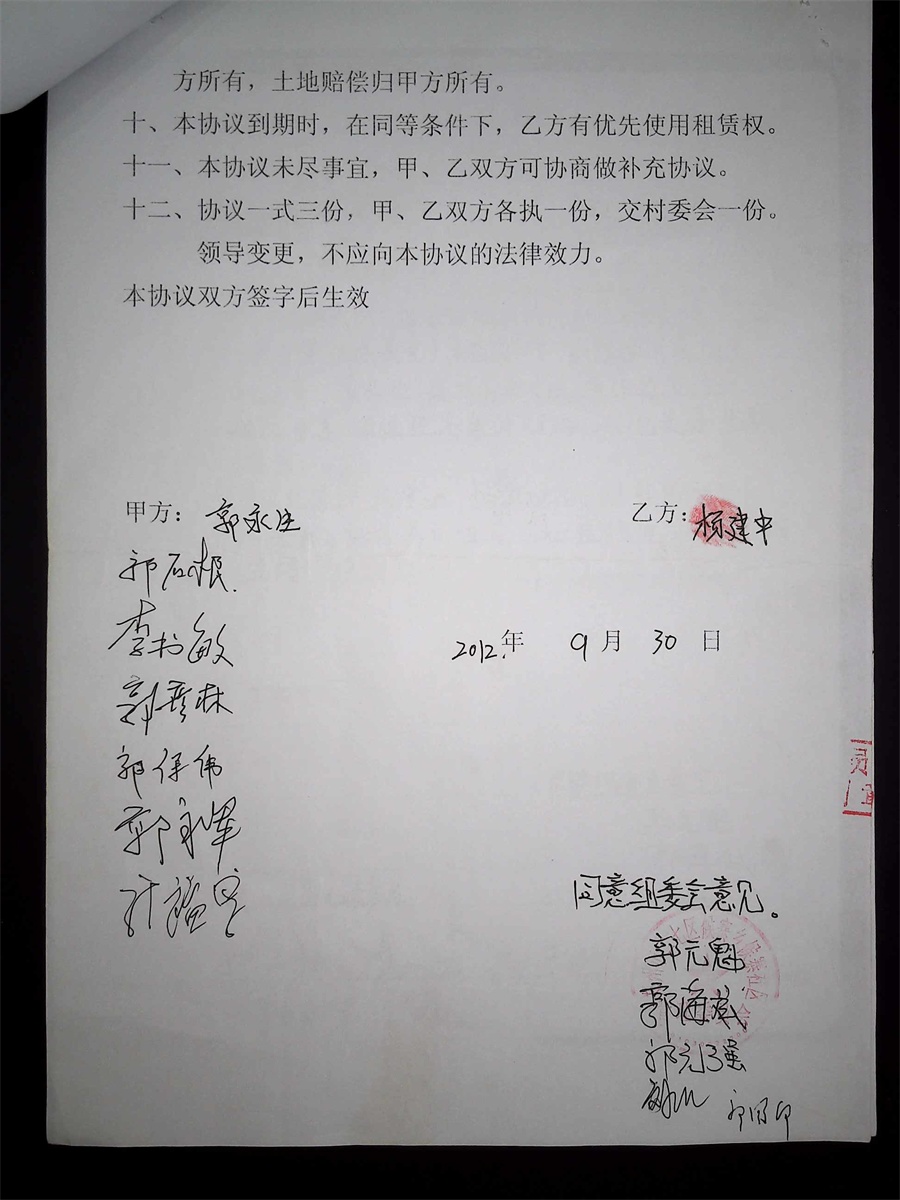 方所有，土地赔偿归甲方所有。
十、本协议到期时，在同等条件下，乙方有优先使用租赁权。
十一、本协议未尽事宜，甲、乙双方可协商做补充协议。
十二、协议一式三份，甲、乙双方各执一份，交村委会一份。
领导变更，不应向本协议的法律效力。
本协议双方签字后生效
甲方：郭永生 乙方：杨建中
郭石根
李书敏
2012.年 9月 30日
郭彦林
郭保伟
郭永军
同意组委会意见。
郭元魁
郭海斌
郭元强